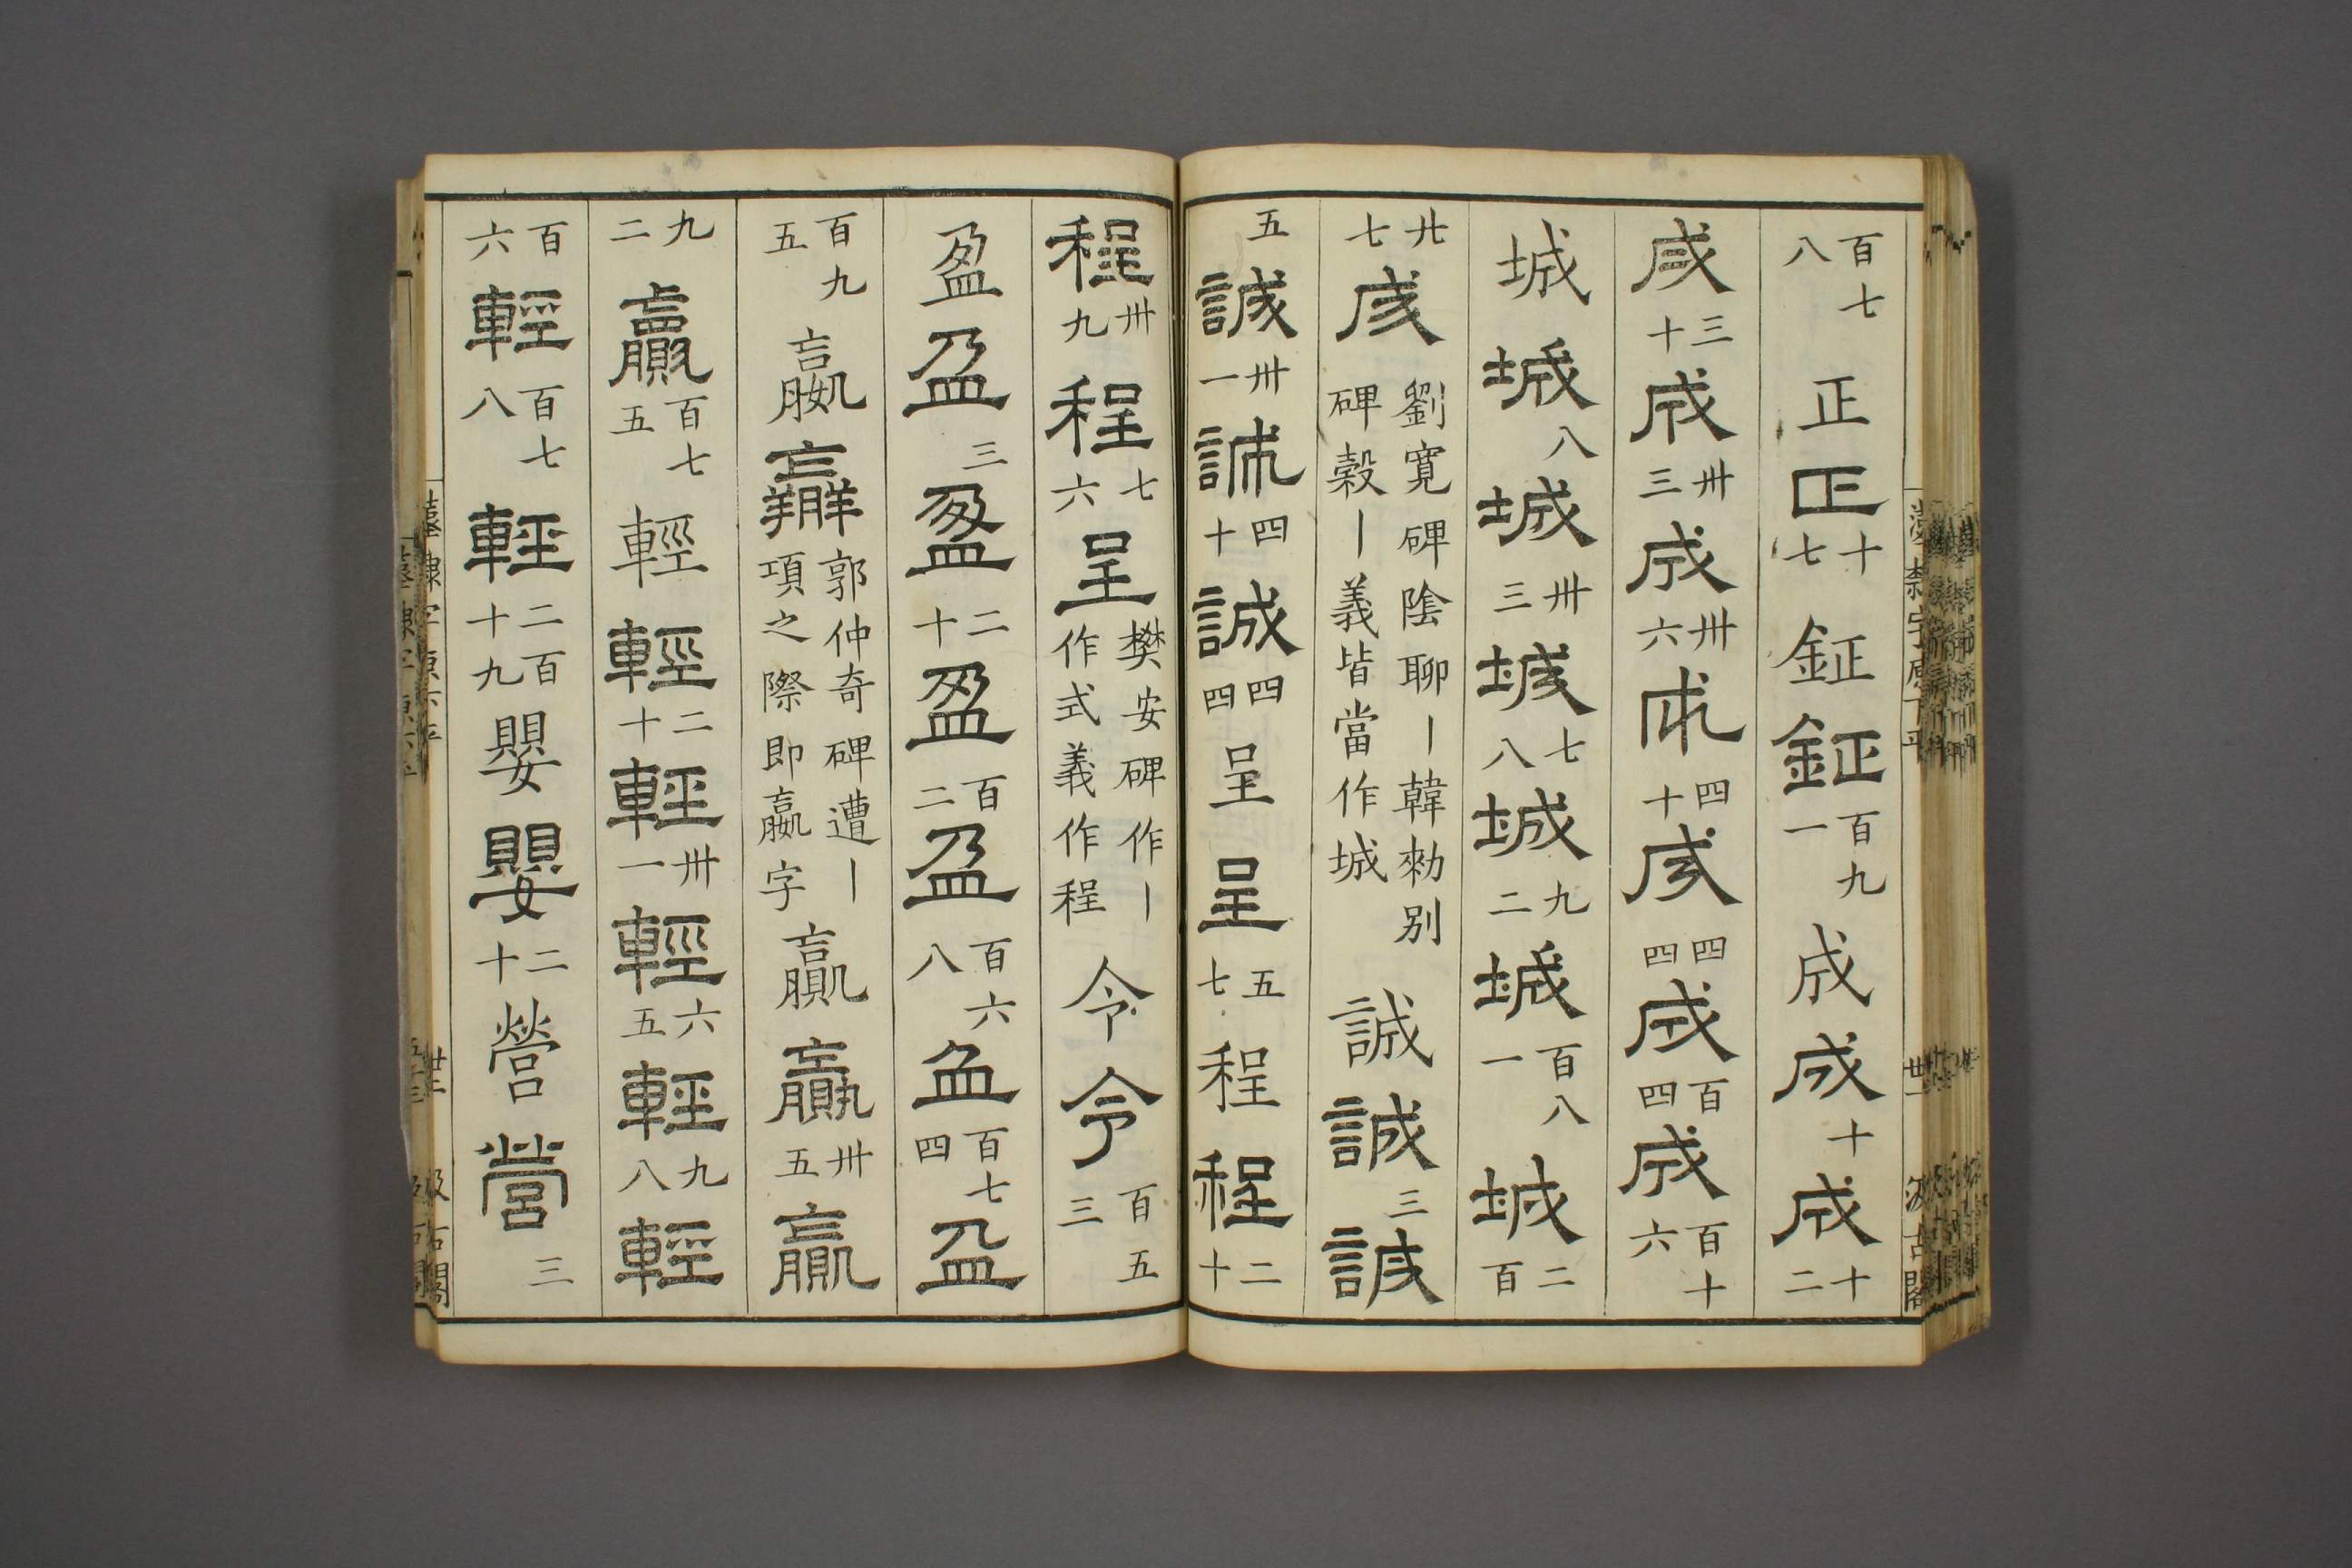 百七八 正 正 十七 鉦 鉦 百九一 成 成 十 成 十二
成 三十 成 卅三 成 卅六 成 四十 成 四四 成 百四 成 百十六
城 城 八 城 卅三 城 七八 城 九二 城 百八一 城 二百
廿七 成 劉寬碑陰聊丨韓勑別碑穀丨義皆當作城 誠 誠 三 誠
五 誠 卅一 誠 四十 誠 四四 呈 呈 五七 程 程 二十
程 卅九 程 七六 呈 樊安碑作丨作式義作程 令 令 百五三
盈 盈 三 盈 二十 盈 百二 盈 百六八 盈 百七四 盈
百九五 嬴 嬴 郭仲奇碑遭丨項之際即嬴字 贏 贏 卅五 贏
九二 贏 百七五 輕 輕 二十 輕 卅一 輕 六五 輕 九八 輕
百六 輕 百七八 輕 二百十九 嬰 嬰 二十 營 營 三
汲古閣